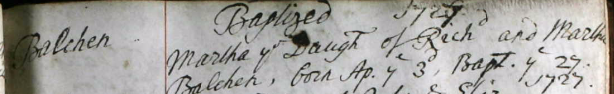 Baptized 1727
Balchen
Martha yᵉ Daughᵗ of Richᵈ and Martha
Balchen, born Ap. yᵉ 3ᵈ, Bapt. yᵉ 27.
1727.